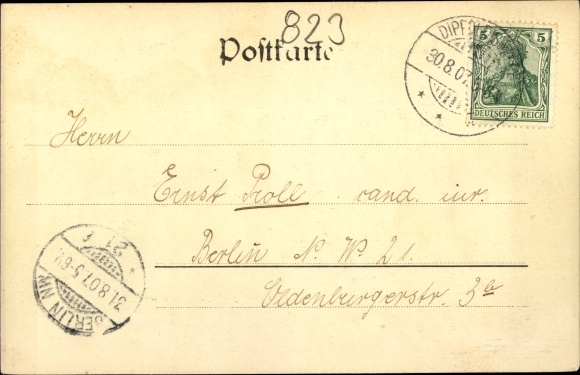 823
Postkarte
30.8.07
5 5
DEUTSCHES REICH
Herrn
Ernst Proll cand. iur.
Berlin N. W. 21.
Oldenburgerstr. 3a
BERLIN NW
31.8.07. 5-6V.
21